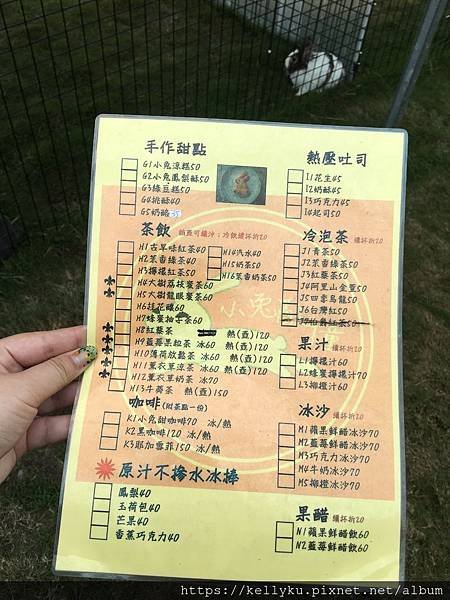 手作甜點
G1小兔涼糕50
G2小兔鳳梨酥50
G3綠豆糕50
G4桃酥40
G5奶酪
熱壓吐司
I1花生45
I2奶酥45
I3巧克力45
I4起司50
茶飲 續杯折20
H1古早味紅茶40
H2茉香綠茶40
H3檸檬紅茶50
H4大樹荔枝蜜茶60
H5大樹龍眼蜜茶60
H6桂花釀60
H7蜂蜜柚子茶60
H8紅藜茶 熱(壺)120
H9藍莓果粒茶 冰60 熱(壺)120
H10薄荷放鬆茶 冰60 熱(壺)120
H11薰衣草涼茶 冰60 熱(壺)120
H12薰衣草奶茶 冰70
H13牛蒡茶 熱(壺)150
H14汽水40
H15奶茶50
H16茉香奶茶50
冷泡茶 續杯折20
J1青茶50
J2茉香綠茶50
J3紅藜茶50
J4阿里山金萱50
J5四季烏龍50
J6台灣紅50
小兔
果汁 續杯折20
L1檸檬汁60
L2蜂蜜檸檬汁70
L3柳橙汁60
咖啡(附茶點一份)
K1小兔甜咖啡70 冰/熱
K2黑咖啡120 冰/熱
K3耶加雪菲150 冰/熱
冰沙 續杯折20
M1蘋果鮮醋冰沙70
M2藍莓鮮醋冰沙70
M3巧克力冰沙70
M4牛奶冰沙70
M5柳橙冰沙70
原汁不摻水冰棒
鳳梨40
玉荷包40
芒果40
香蕉巧克力40
果醋 續杯折20
N1蘋果鮮醋飲60
N2藍莓鮮醋飲60
https://kellyku.pixnet.net/album